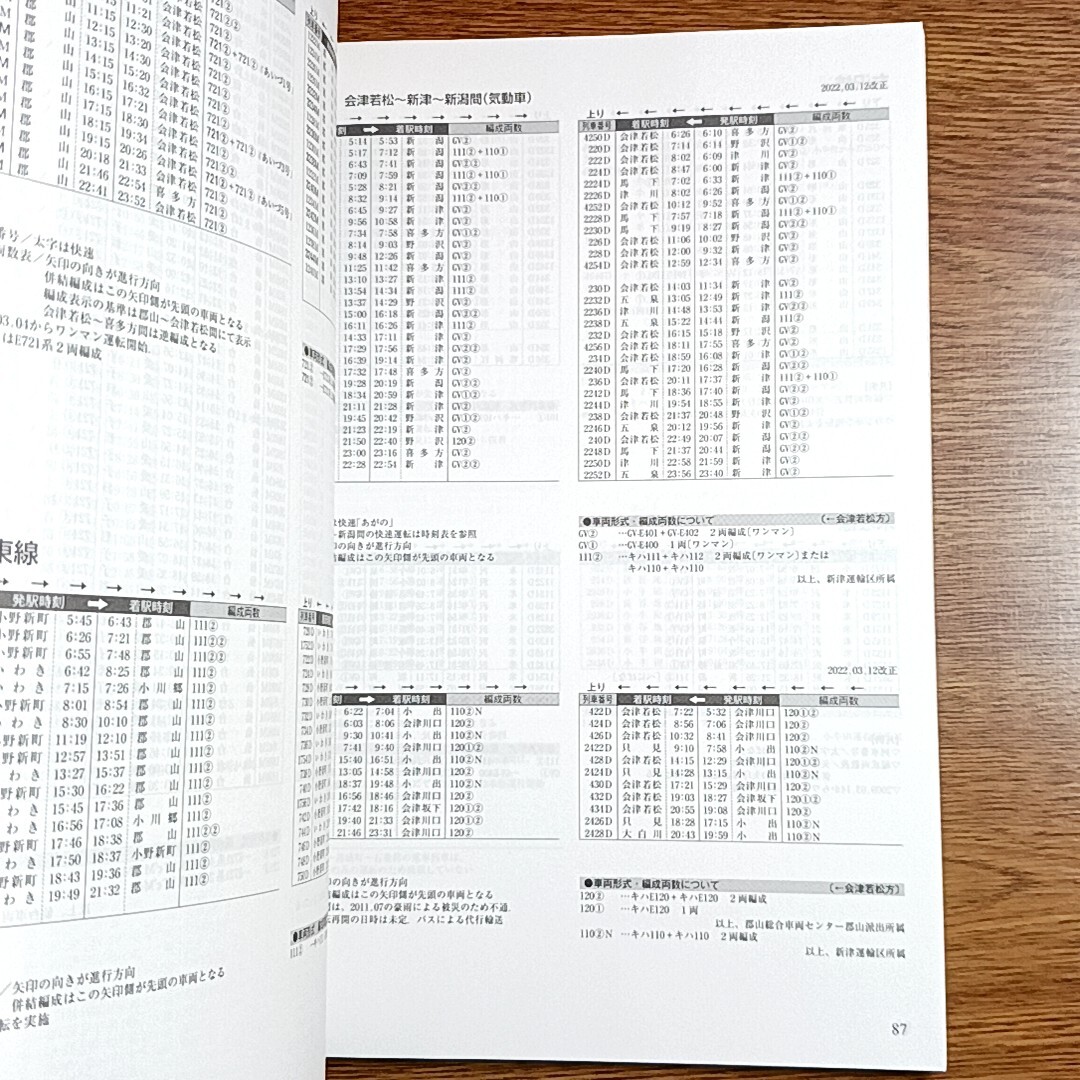 山 11:15 12:30 会津若松 721②②
郡 山 12:15 13:20 会津若松 721②
郡 山 13:15 14:20 会津若松
郡 山 14:15 15:20 会津若松
郡 山 15:15 16:32 会津若松
郡 山 16:15 17:21 会津若松
郡 山 17:15 18:30 会津若松
郡 山 18:15 19:34 会津若松
郡 山 19:15 20:26 会津若松
山 20:18 21:33 会津若松
山 21:46 22:54 喜多方 721②
山 22:41 23:52 会津若松 721②
番号/太字は快速
両数表/矢印の向きが進行方向
併結編成はこの矢印側が先頭の車両となる
編成表示の基準は郡山～会津若松間にて表示
会津若松～喜多方間は逆編成となる
03.04からワンマン運転開始.
はE721系2両編成
東線
発駅時刻 ➡ 着駅時刻 編成両数
小野新町 5:45 6:43 郡 山 111②
小野新町 6:26 7:21 郡 山 111②②
小野新町 6:55 7:48 郡 山 111②②
いわき 6:42 8:25 郡 山 111②
わき 7:15 7:26 小川郷 111②
小野新町 8:01 8:54 郡 山 111②
わき 8:30 10:10 郡 山 111②
小野新町 11:19 12:10 郡 山 111②
小野新町 12:57 13:51 郡 山 111②
わき 13:27 15:37 郡 山 111②
野新町 15:30 16:22 郡 山 111②
わき 15:45 17:36 郡 山 111②
わき 16:56 17:08 小川郷 111②
野新町 17:46 18:38 郡 山 111②②
わき 17:50 18:37 小野新町 111②
野新町 18:43 19:36 郡 山 111②
わき 19:49 21:32 郡 山 111②
/矢印の向きが進行方向
併結編成はこの矢印側が先頭の車両となる
転を実施
会津若松～新津～新潟間(気動車)
2022.03.12改正
刻 ➡ 着駅時刻 編成両数
5:14 5:53 新 潟 GV②
5:17 7:12 新 潟 111②+110①
6:43 7:41 新 潟 GV②②
7:09 7:59 新 潟 111②+110①
5:28 8:21 新 潟 GV②②
8:32 9:14 新 潟 111②+110①
6:45 9:27 新 津 GV②
9:56 10:58 新 津 GV②
7:34 7:58 喜多方 GV①②
8:14 9:03 野 沢 GV②
9:48 12:26 新 潟 GV②
11:25 11:42 喜多方 GV②
13:10 13:27 新 津 111②
13:54 14:34 新 潟 111②
13:37 14:29 野 沢 GV②
15:00 16:18 新 潟 GV②②
16:11 16:26 新 津 111②
14:33 17:11 新 津 GV②
17:29 17:56 新 津 GV②②
16:39 19:14 新 津 GV②
17:32 17:48 喜多方 GV②
19:28 20:19 新 潟 GV②②
18:34 20:59 新 津 GV①②
21:11 21:28 新 津 GV②
19:45 20:42 野 沢 GV①②
21:23 22:19 新 津 GV②
21:50 22:40 野 沢 120②
23:00 23:16 喜多方 GV②
22:28 22:54 新 津 GV②②
は快速「あがの」
～新潟間の快速運転は時刻表を参照
印の向きが進行方向
編成はこの矢印側が先頭の車両となる
上り
列車番号 着駅時刻 ⬅ 発駅時刻 編成両数
4250D 会津若松 6:26 6:10 喜多方 GV②
220D 会津若松 7:14 6:14 野 沢 GV①②
222D 会津若松 8:02 6:09 津 川 GV②
224D 会津若松 8:47 6:00 新 津 GV②
2224D 馬 下 7:02 6:33 新 潟 111②+110①
2226D 津 川 8:02 6:26 新 潟 GV②②
4252D 会津若松 10:12 9:52 喜多方 GV①②
2228D 馬 下 7:57 7:18 新 潟 111②+110①
2230D 馬 下 9:19 8:27 新 潟 GV②②
226D 会津若松 11:06 10:02 野 沢 GV②
228D 会津若松 12:00 9:32 新 津 GV②
4254D 会津若松 12:59 12:34 喜多方 GV②
230D 会津若松 14:03 11:34 新 津 GV②
2232D 五 泉 13:05 12:49 新 津 111②
2236D 津 川 14:48 13:53 新 津 GV②②
2238D 五 泉 15:22 14:44 新 潟 111②
232D 会津若松 16:15 15:18 野 沢 GV②
4256D 会津若松 18:11 17:55 喜多方 GV②
234D 会津若松 18:59 16:08 新 津 GV①②
2240D 馬 下 17:20 16:28 新 潟 GV②②
236D 会津若松 20:11 17:37 新 津 111②+110①
2242D 馬 下 18:36 17:40 新 潟 GV②②
2244D 津 川 19:54 18:55 新 津 GV②
238D 会津若松 21:37 20:48 野 沢 GV①②
2246D 五 泉 20:12 19:56 新 津 GV②
240D 会津若松 22:49 20:07 新 潟 GV②②
2248D 馬 下 21:37 20:44 新 潟 GV②②
2250D 津 川 22:58 21:59 新 津 GV②
2252D 五 泉 23:56 23:40 新 津 GV②
●車両形式・編成両数について (←会津若松方)
GV② …GV-E401+GV-E402 2両編成〔ワンマン〕
GV① …GV-E400 1両〔ワンマン〕
111② …キハ111+キハ112 2両編成〔ワンマン〕または
キハ110+キハ110
以上、新津運輸区所属
2022.03.12改正
刻 ➡ 着駅時刻 編成両数
6:22 7:04 小 出 110②N
6:03 8:06 会津川口 120②
9:30 10:41 小 出 110②N
7:41 9:40 会津川口 120①②
15:40 16:51 小 出 110②N
13:05 14:58 会津川口 120②
18:37 19:48 小 出 110②N
16:56 18:46 会津川口 120②
17:42 18:16 会津坂下 120①②
19:40 21:33 会津川口 120①②
21:46 23:31 会津川口 120②
印の向きが進行方向
編成はこの矢印側が先頭の車両となる
は、2011.07の豪雨による被災のため不通.
再開の日時は未定.バスによる代行輸送
上り
列車番号 着駅時刻 ⬅ 発駅時刻 編成両数
422D 会津若松 7:22 5:32 会津川口 120①②
424D 会津若松 8:56 7:06 会津川口 120②
426D 会津若松 10:32 8:41 会津川口 120②
2422D 只 見 9:10 7:58 小 出 110②N
428D 会津若松 14:15 12:29 会津川口 120①②
2424D 只 見 14:28 13:15 小 出 110②N
430D 会津若松 17:21 15:29 会津川口 120②
432D 会津若松 19:03 18:27 会津坂下 120①②
434D 会津若松 20:55 19:08 会津川口 120①②
2426D 只 見 18:28 17:15 小 出 110②N
2428D 大白川 20:43 19:59 小 出 110②N
●車両形式・編成両数について (←会津若松方)
120② …キハE120+キハE120 2両編成
120① …キハE120 1両
以上、郡山総合車両センター郡山派出所属
110②N …キハ110+キハ110 2両編成
以上、新津運輸区所属
87